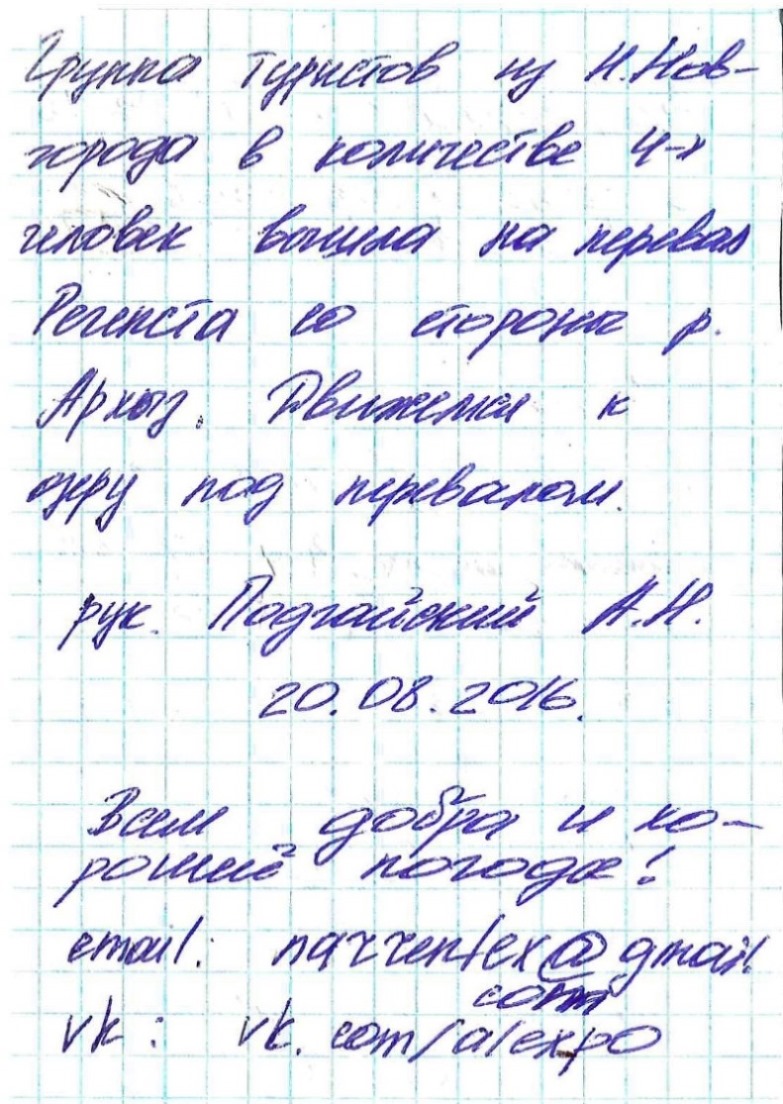 Группа туристов из Н.Нов-
города в количестве 4-х
человек вышла на перевал
Регенста со стороны р.
Архыз. Движемся к
озеру под перевалом.
рук. Подгайский А.Н.
20.08.2016.
Всем добра и хо-
рошей погоды!
email: @gmail.
com
vk: vk.com/alexpo